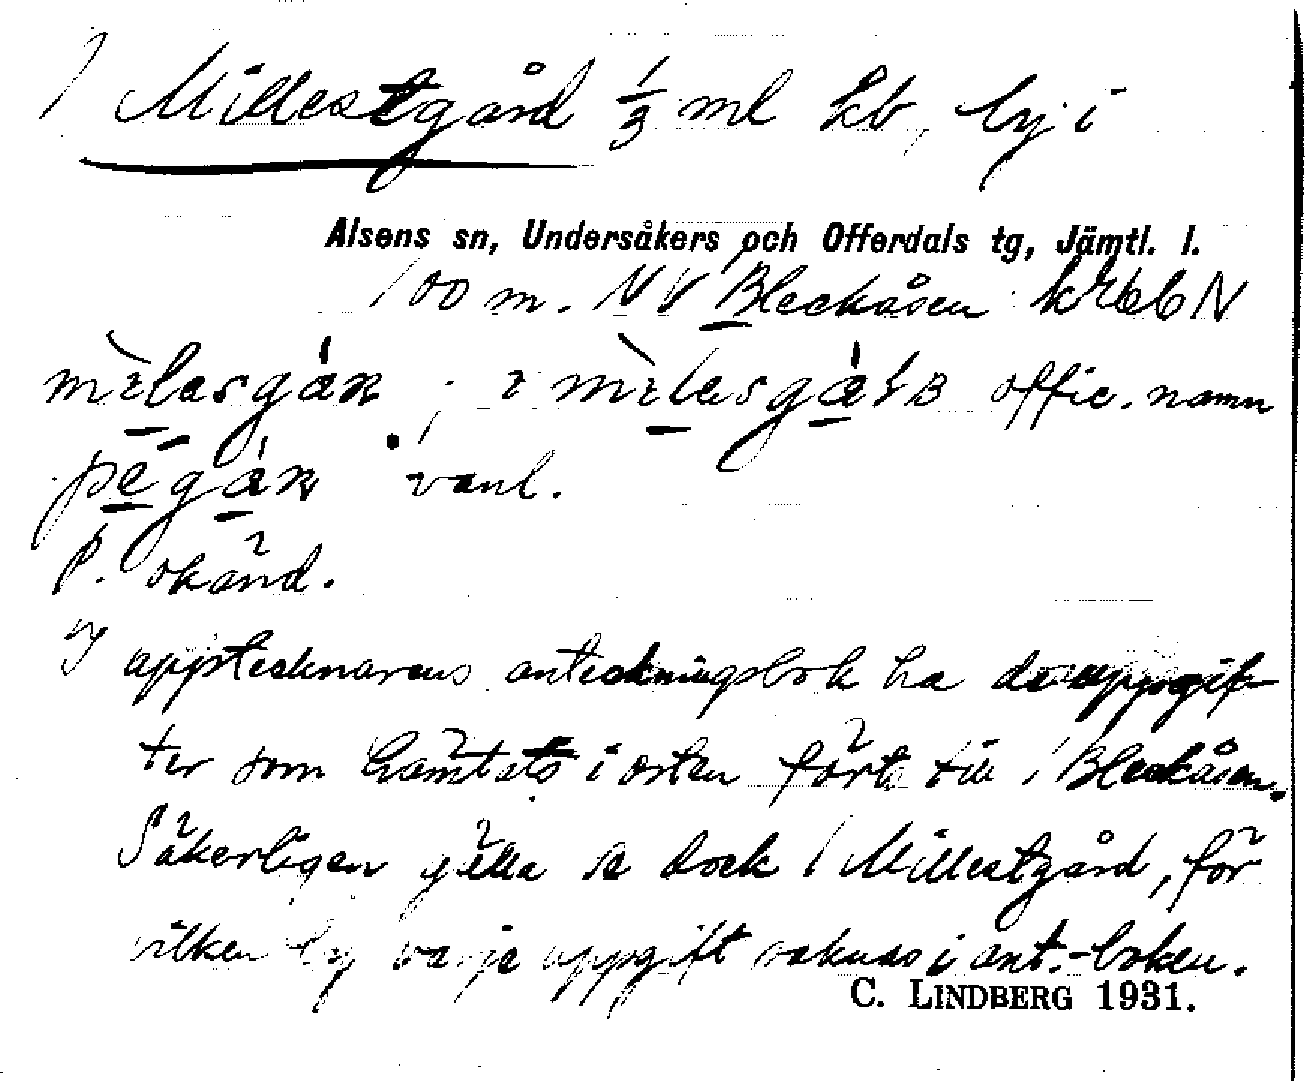 / Millestgård 1/3 ml kb, by i
Alsens sn, Undersåkers och Offerdals tg, Jämtl. l.
100 m. NV Bleckåsen
offic. namn
vanl.
P. okänd.
I upptecknarens anteckningsbok ha de uppgif-
ter som hämtats i orten förts till / Bleckåsen.
Säkerligen gälla de dock / Millestgård, för
vilken by varje uppgift saknas i ant.-boken.
C. LINDBERG 1931.